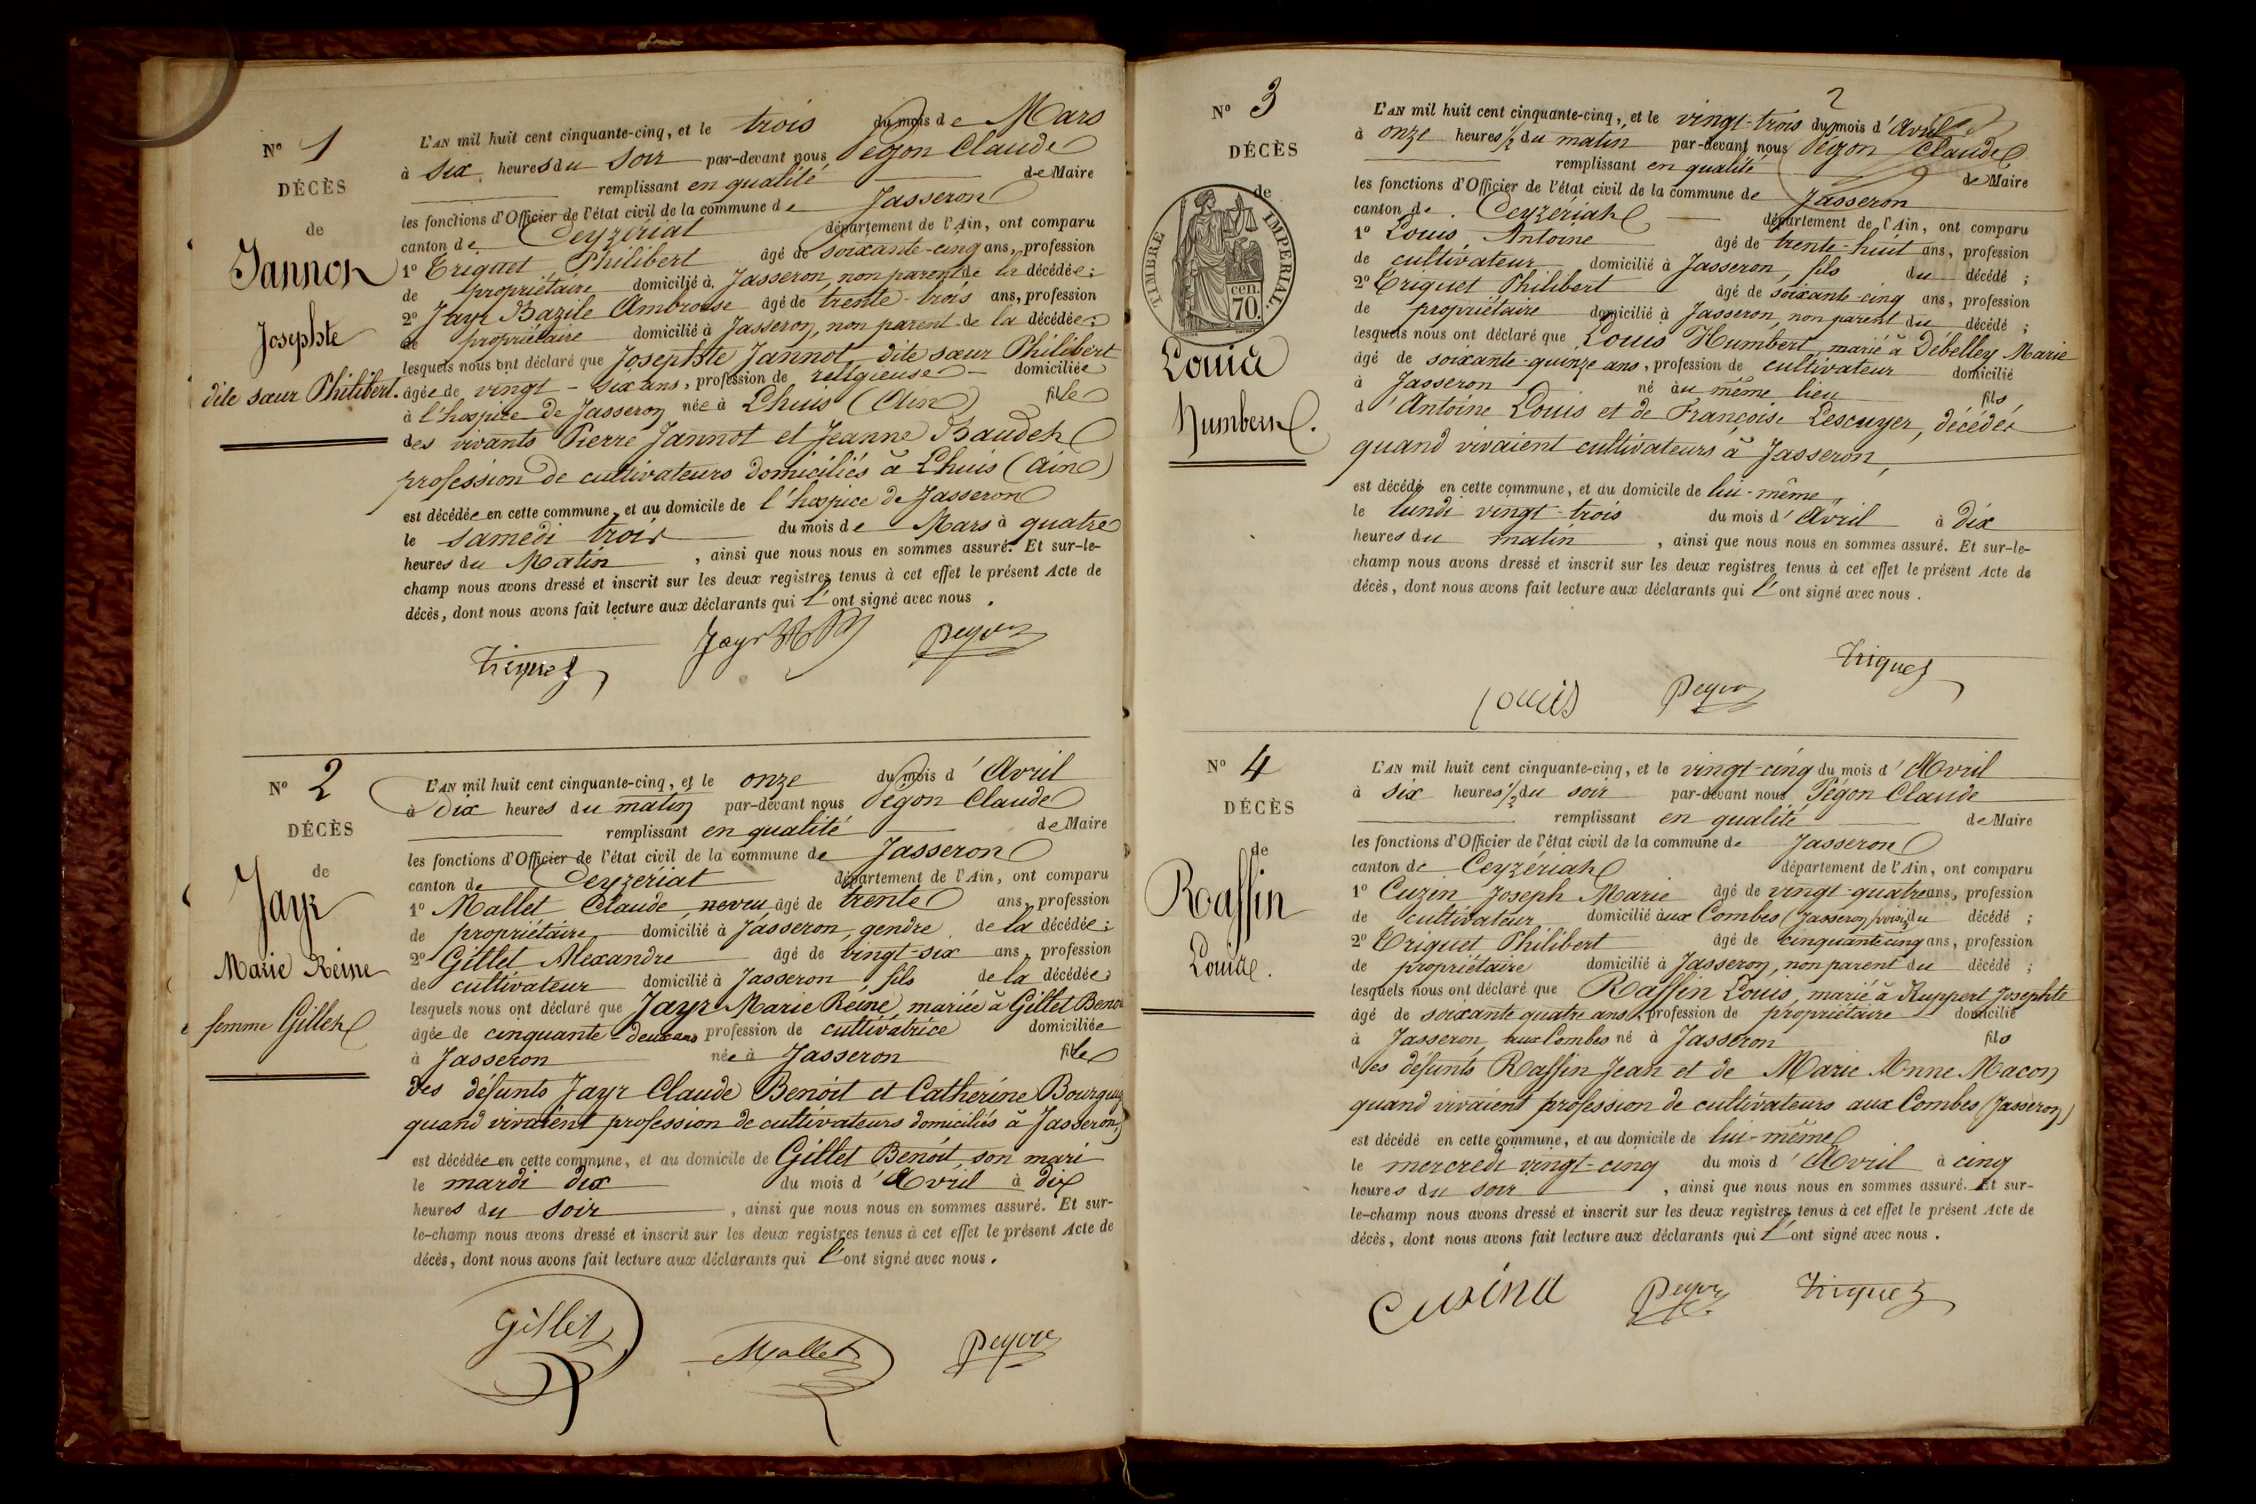 N° 1
DÉCÈS
de
Jannot
Josephte
dite sœur Philibert.
L'AN mil huit cent cinquante-cinq, et le trois du mois de Mars
à six heures du soir par-devant nous Pégon Claude
remplissant en qualité de Maire
les fonctions d'Officier de l'état civil de la commune de Jasseron
canton de Ceyzériat département de l'Ain, ont comparu
1° Triquet Philibert âgé de soixante-cinq ans, profession
de propriétaire domicilié à Jasseron, non parent de la décédée;
2° Jayr Bazile Ambroise âgé de trente-trois ans, profession
de propriétaire domicilié à Jasseron, non parent de la décédée;
lesquels nous ont déclaré que Josephte Jannot, dite sœur Philibert
âgée de vingt-six ans, profession de religieuse domiciliée
à l'hospice de Jasseron née à Lhuis (Ain) fille
des vivants Pierre Jannot et Jeanne Baudet
profession de cultivateurs domiciliés à Lhuis (Ain)
est décédée en cette commune, et au domicile de l'hospice de Jasseron
le samedi trois du mois de Mars à quatre
heures du Matin, ainsi que nous nous en sommes assuré. Et sur-le-
champ nous avons dressé et inscrit sur les deux registres tenus à cet effet le présent Acte de
décès, dont nous avons fait lecture aux déclarants qui l'ont signé avec nous.
Triquet Jayr Pegon
N° 2
DÉCÈS
de
Jayr
Marie Reine
femme Gillet
L'AN mil huit cent cinquante-cinq, et le onze du mois d'Avril
à dix heures du matin par-devant nous Pégon Claude
remplissant en qualité de Maire
les fonctions d'Officier de l'état civil de la commune de Jasseron
canton de Ceyzériat département de l'Ain, ont comparu
1° Mallet Claude, neveu âgé de trente ans, profession
de propriétaire domicilié à Jasseron, gendre de la décédée;
2° Gillet Alexandre âgé de vingt-six ans, profession
de cultivateur domicilié à Jasseron fils de la décédée;
lesquels nous ont déclaré que Jayr Marie Reine, mariée à Gillet Benoit
âgée de cinquante-deux ans profession de cultivatrice domiciliée
à Jasseron née à Jasseron fille
des défunts Jayr Claude Benoit et Catherine
quand vivaient profession de cultivateurs domiciliés à Jasseron,
est décédée en cette commune, et au domicile de Gillet Benoit, son mari
le mardi dix du mois d'Avril à dix
heures du soir, ainsi que nous nous en sommes assuré. Et sur-
le-champ nous avons dressé et inscrit sur les deux registres tenus à cet effet le présent Acte de
décès, dont nous avons fait lecture aux déclarants qui l'ont signé avec nous.
Gillet Mallet Pegon
2
N° 3
DÉCÈS
de
TIMBRE IMPÉRIAL.
cen.
70.
Louis
Humbert.
L'AN mil huit cent cinquante-cinq, et le vingt-trois du mois d'Avril
à onze heures ½ du matin par-devant nous Pégon Claude
remplissant en qualité de Maire
les fonctions d'Officier de l'état civil de la commune de Jasseron
canton de Ceyzériat département de l'Ain, ont comparu
1° Louis Antoine âgé de trente-huit ans, profession
de cultivateur domicilié à Jasseron, fils du décédé;
2° Triquet Philibert âgé de soixante-cinq ans, profession
de propriétaire domicilié à Jasseron, non parent du décédé;
lesquels nous ont déclaré que Louis Humbert, marié à Débelley Marie
âgé de soixante-quinze ans, profession de cultivateur domicilié
à Jasseron né au même lieu fils
d'Antoine Louis et de Françoise Lescuyer, décédés
quand vivaient cultivateurs à Jasseron,
est décédé en cette commune, et au domicile de lui-même,
le lundi vingt-trois du mois d'Avril à dix
heures du matin, ainsi que nous nous en sommes assuré. Et sur-le-
champ nous avons dressé et inscrit sur les deux registres tenus à cet effet le présent Acte de
décès, dont nous avons fait lecture aux déclarants qui l'ont signé avec nous.
Triquet
Louis Pegon
N° 4
DÉCÈS
de
Raffin
Louis.
L'AN mil huit cent cinquante-cinq, et le vingt-cinq du mois d'Avril
à six heures ½ du soir par-devant nous Pégon Claude
remplissant en qualité de Maire
les fonctions d'Officier de l'état civil de la commune de Jasseron
canton de Ceyzériat département de l'Ain, ont comparu
1° Cuzin Joseph Marie âgé de vingt-quatre ans, profession
de cultivateur domicilié aux Combes (Jasseron) voisin du décédé;
2° Triquet Philibert âgé de cinquante cinq ans, profession
de propriétaire domicilié à Jasseron, non parent du décédé;
lesquels nous ont déclaré que Raffin Louis, marié à Ruppert Josephte
âgé de soixante quatre ans, profession de propriétaire domicilié
à Jasseron, aux Combes né à Jasseron fils
des défunts Raffin Jean et de Marie Anne Macon
quand vivaient profession de cultivateurs aux Combes (Jasseron)
est décédé en cette commune, et au domicile de lui-même
le mercredi vingt-cinq du mois d'Avril à cinq
heures du soir, ainsi que nous nous en sommes assuré. Et sur-
le-champ nous avons dressé et inscrit sur les deux registres tenus à cet effet le présent Acte de
décès, dont nous avons fait lecture aux déclarants qui l'ont signé avec nous.
Cusin Pegon Triquet